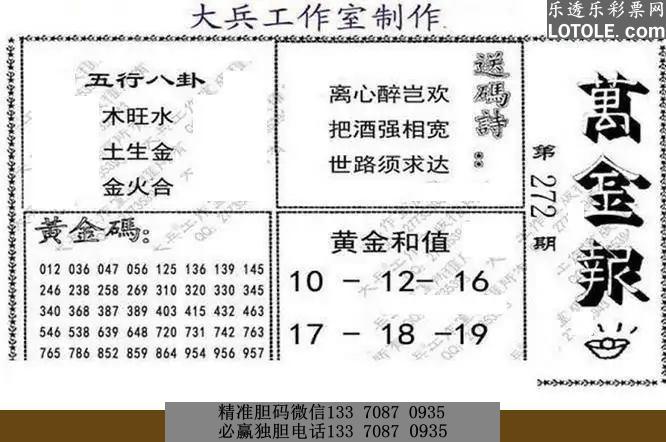 大兵工作室制作
乐透乐彩票网
LOTOLE.COM
五行八卦
木旺水
土生金
金火合
送碼詩：
离心醉岂欢
把酒强相宽
世路须求达
萬金報
第272期
黃金碼：
012 036 047 056 125 136 139 145
246 238 258 269 310 320 330 345
340 368 387 389 403 415 432 463
546 538 639 648 720 731 742 763
765 786 852 859 864 954 956 957
黄金和值
10 - 12- 16
17 - 18 -19
精准胆码微信133 7087 0935
必赢独胆电话133 7087 0935